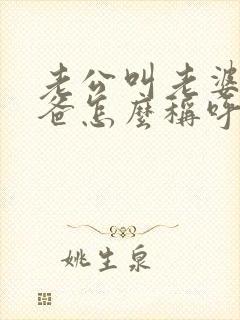 老公叫老婆
爸怎麼稱呼
姚生泉